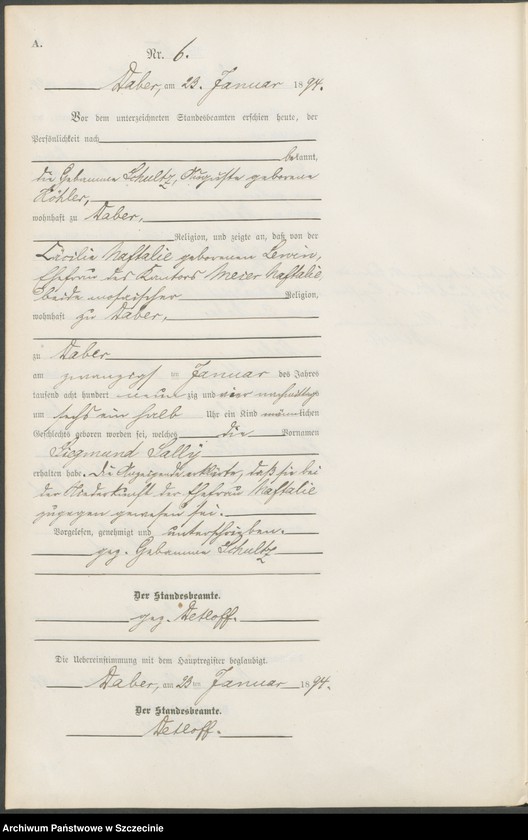 A.
Nr. 6.
Daber, am 23. Januar 1894.
Vor dem unterzeichneten Standesbeamten erschien heute, der
Persönlichkeit nach
bekannt,
die Hebamme Schultz, Auguste geborene
Köhler,
wohnhaft zu Daber,
Religion, und zeigte an, daß von der
Cäcilie Naftalie geborenen Lewin,
Ehefrau des Kantors Meier Naftalie
beide mosaischer Religion,
wohnhaft zu Daber,
zu Daber
am zwanzigsten Januar des Jahres
tausend acht hundert neunzig und vier nachmittags
um sechs ein halb Uhr ein Kind männlichen
Geschlechts geboren worden sei, welches die Vornamen
Siegmund Sally
erhalten habe. Die Anzeigende erklärte, daß sie bei
der Niederkunft der Ehefrau Naftalie
zugegen gewesen sei.
Vorgelesen, genehmigt und unterschrieben.
gez. Hebamme Schultz
Der Standesbeamte.
gez. Detloff.
Die Uebereinstimmung mit dem Hauptregister beglaubigt.
Daber, am 23ten Januar 1894.
Der Standesbeamte.
Detloff.
Archiwum Państwowe w Szczecinie